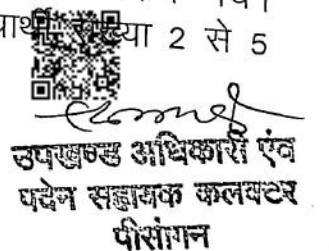 संख्या 2 से 5
उपखण्ड अधिकारी एंव
पदेन सहायक कलक्टर
पीसांगन